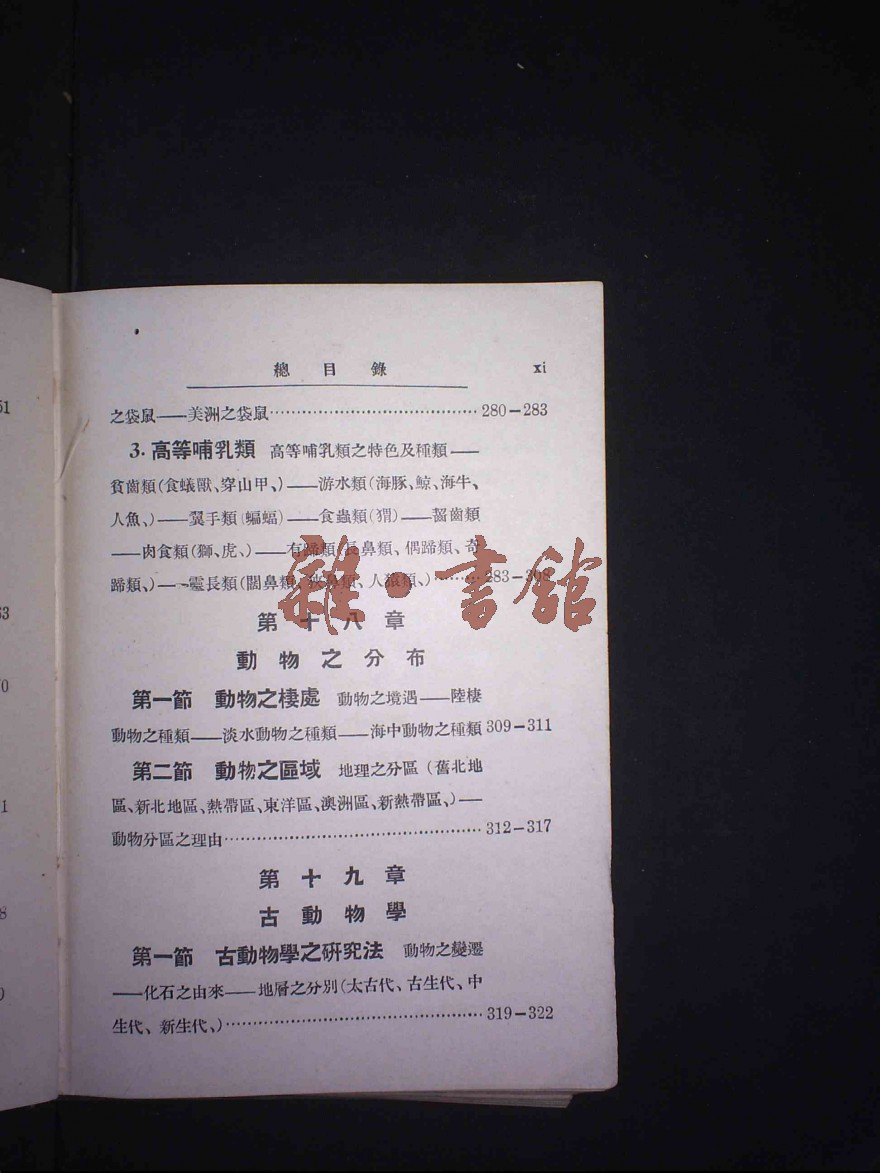 總目錄 xi
之袋鼠——美洲之袋鼠…………………………………280—283
3. 高等哺乳類 高等哺乳類之特色及種類——
貧齒類(食蟻獸、穿山甲、)——游水類(海豚、鯨、海牛、
人魚、)——翼手類(蝙蝠)——食蟲類(猬)——齧齒類
——肉食類(獅、虎、)——有蹄類(長鼻類、偶蹄類、奇
蹄類、)——靈長類(闊鼻類、狹鼻類、人猿類、)………283—308
第十八章
動物之分布
第一節 動物之棲處 動物之境遇——陸棲
動物之種類——淡水動物之種類——海中動物之種類 309—311
第二節 動物之區域 地理之分區(舊北地
區、新北地區、熱帶區、東洋區、澳洲區、新熱帶區、)——
動物分區之理由…………………………………………312—317
第十九章
古動物學
第一節 古動物學之研究法 動物之變遷
——化石之由來——地層之分別(太古代、古生代、中
生代、新生代、)…………………………………………319—322
雜·書館
51
63
70
1
8